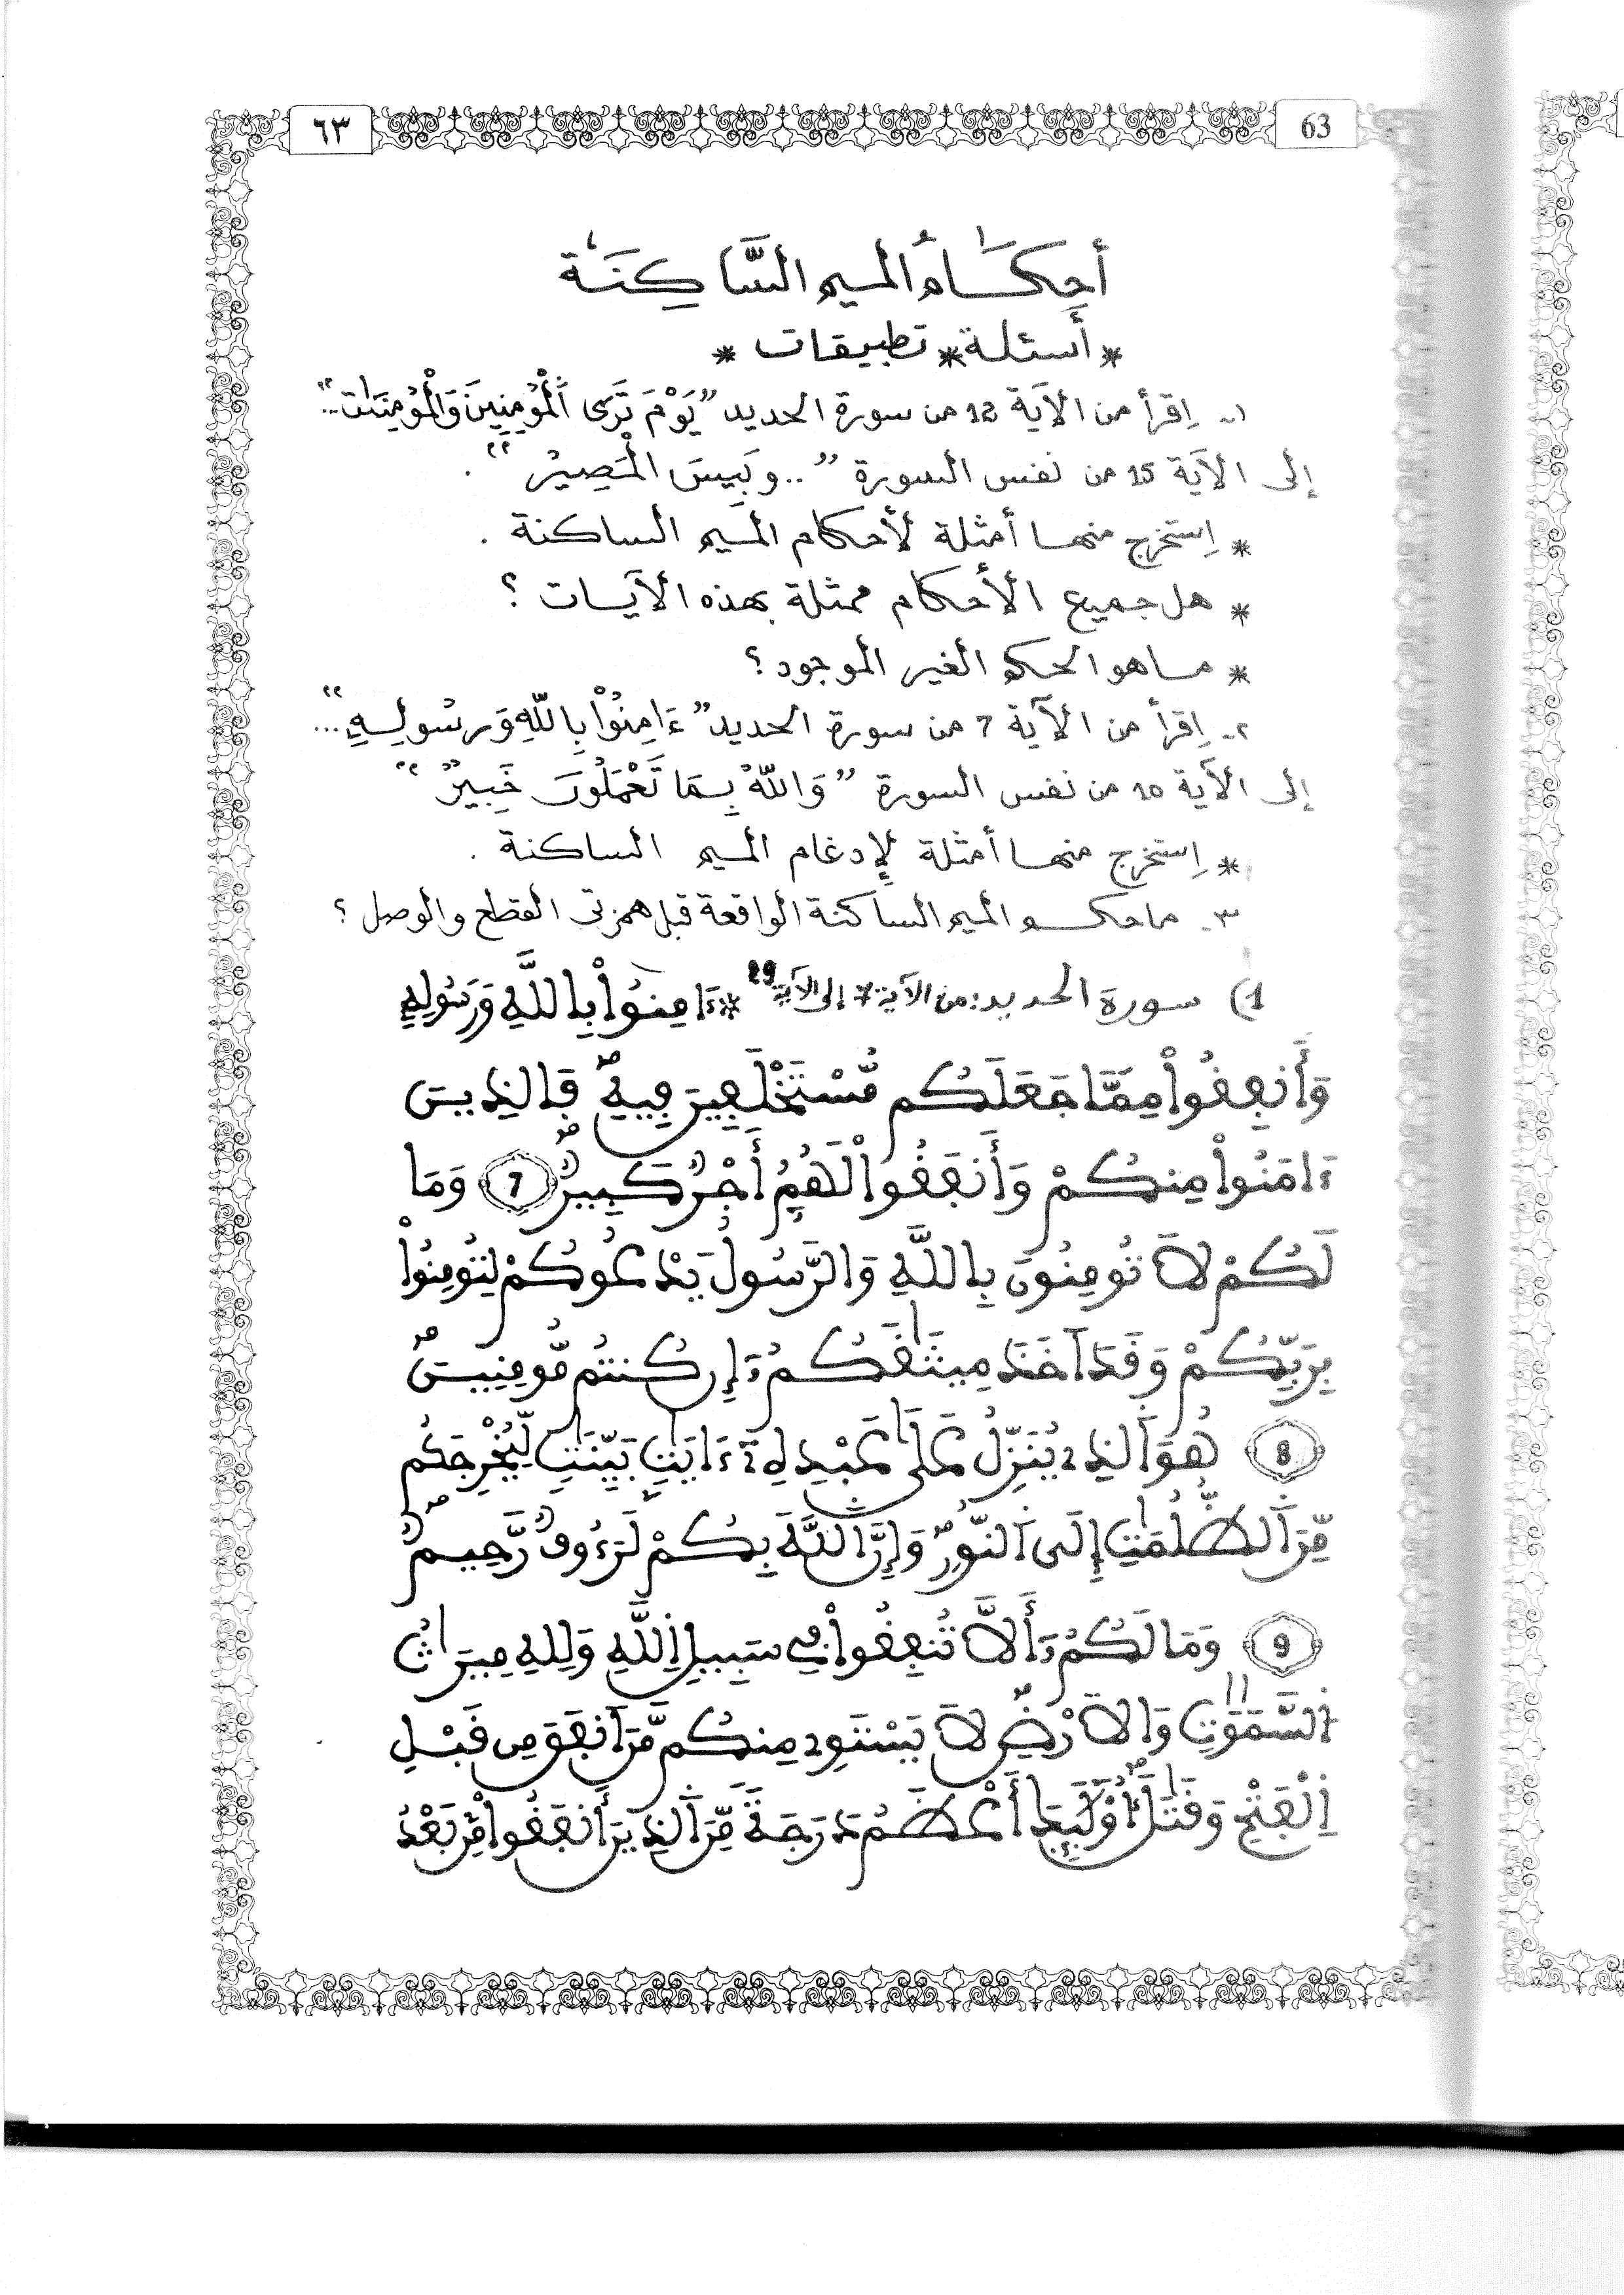 ٦٣
63
أحكَامُ الميم السَّاكِنَة
* أسئلة * تطبيقات *
١- اِقرأ من الآية 12 من سورة الحديد "يَوْمَ تَرَى اَلْمُؤمِنِينَ وَالْمُؤمِنَاتِ.."
إلى الآية 15 من نفس السورة "..وبَيسَ المَصِيرُ".
* اِستخرج منها أمثلة لأحكام الميم الساكنة.
* هل جميع الأحكام ممثلة بهذه الآيات؟
* ماهو الحكم الغير الموجود؟
٢- اِقرأ من الآية 7 من سورة الحديد "ءَامِنُواْ بِاللَّهِ وَرسُولِهِ..."
إلى الآية 10 من نفس السورة "وَاللَّهُ بِمَا تَعْمَلُونَ خَبِيرٌ"
* اِستخرج منها أمثلة لإدغام الميم الساكنة.
٣- ماحكم الميم الساكنة الواقعة قبل همزتي القطع والوصل؟
1) سورة الحديد: من الآية 7 إلى الآية 29 * ءَامِنُواْ بِاللَّهِ وَرَسُولِهِ
وَأَنفِقُواْ مِمَّا جَعَلَكُم مُّسْتَخْلَفِينَ فِيهِۖ فَالذِينَ
ءَامَنُواْ مِنكُمْ وَأَنفَقُواْ لَهُمُۥٓ أَجْرٌ كَبِيرٌۖ 7 وَمَا
لَكُمْ لَا تُومِنُونَ بِاللَّهِ وَالرَّسُولُ يَدْعُوكُمْ لِتُومِنُواْ
بِرَبِّكُمْ وَقَدَ اَخَذَ مِيثَٰقَكُمُۥٓ إِن كُنتُم مُّومِنِينَۖ
8 هُوَ اَلذِے يُنَزِّلُ عَلَىٰ عَبْدِهِۦٓ ءَايَٰتِۢ بَيِّنَٰتٖ لِّيُخْرِجَكُم
مِّنَ اَلظُّلُمَٰتِ إِلَى اَلنُّورِۖ وَإِنَّ اَللَّهَ بِكُمْ لَرَءُوفٞ رَّحِيمٞۖ
9 وَمَا لَكُمُۥٓ أَلَّا تُنفِقُواْ فِي سَبِيلِ اِللَّهِ وَلِلهِ مِيرَٰثُ
اُلسَّمَٰوَٰتِ وَالَارْضِۖ لَا يَسْتَوِے مِنكُم مَّنَ اَنفَقَ مِن قَبْلِ
اِلْفَتْحِ وَقَٰتَلَۖ أُوْلَٰٓئِكَ أَعْظَمُ دَرَجَةٗ مِّنَ اَلذِينَ أَنفَقُواْ مِنۢ بَعْدُ